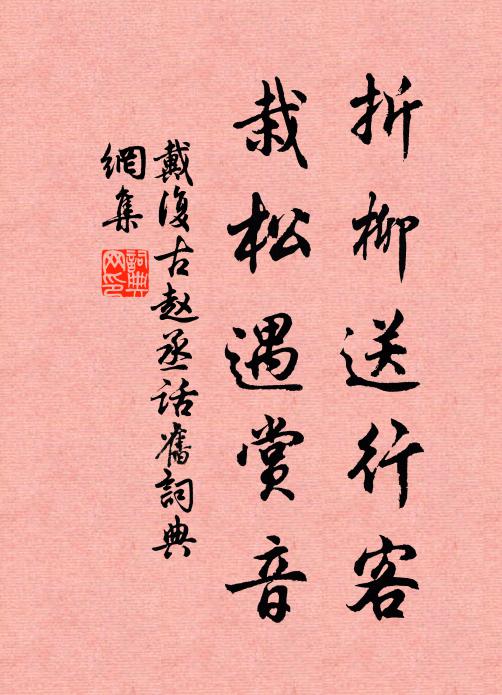 折柳送行客
栽松遇賞音
戴復古赵丞話舊詞典
網集
詞典
网印